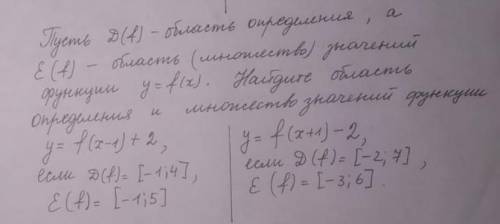 Пусть D(f) – область определения, а
E(f) – область (множество) значений
функции y = f(x). Найдите область
определения и множество значений функции
y = f(x-1) + 2,
если D(f) = [-1; 4],
E(f) = [-1; 5]
y = f(x+1) - 2,
если D(f) = [-2; 7],
E(f) = [-3; 6].